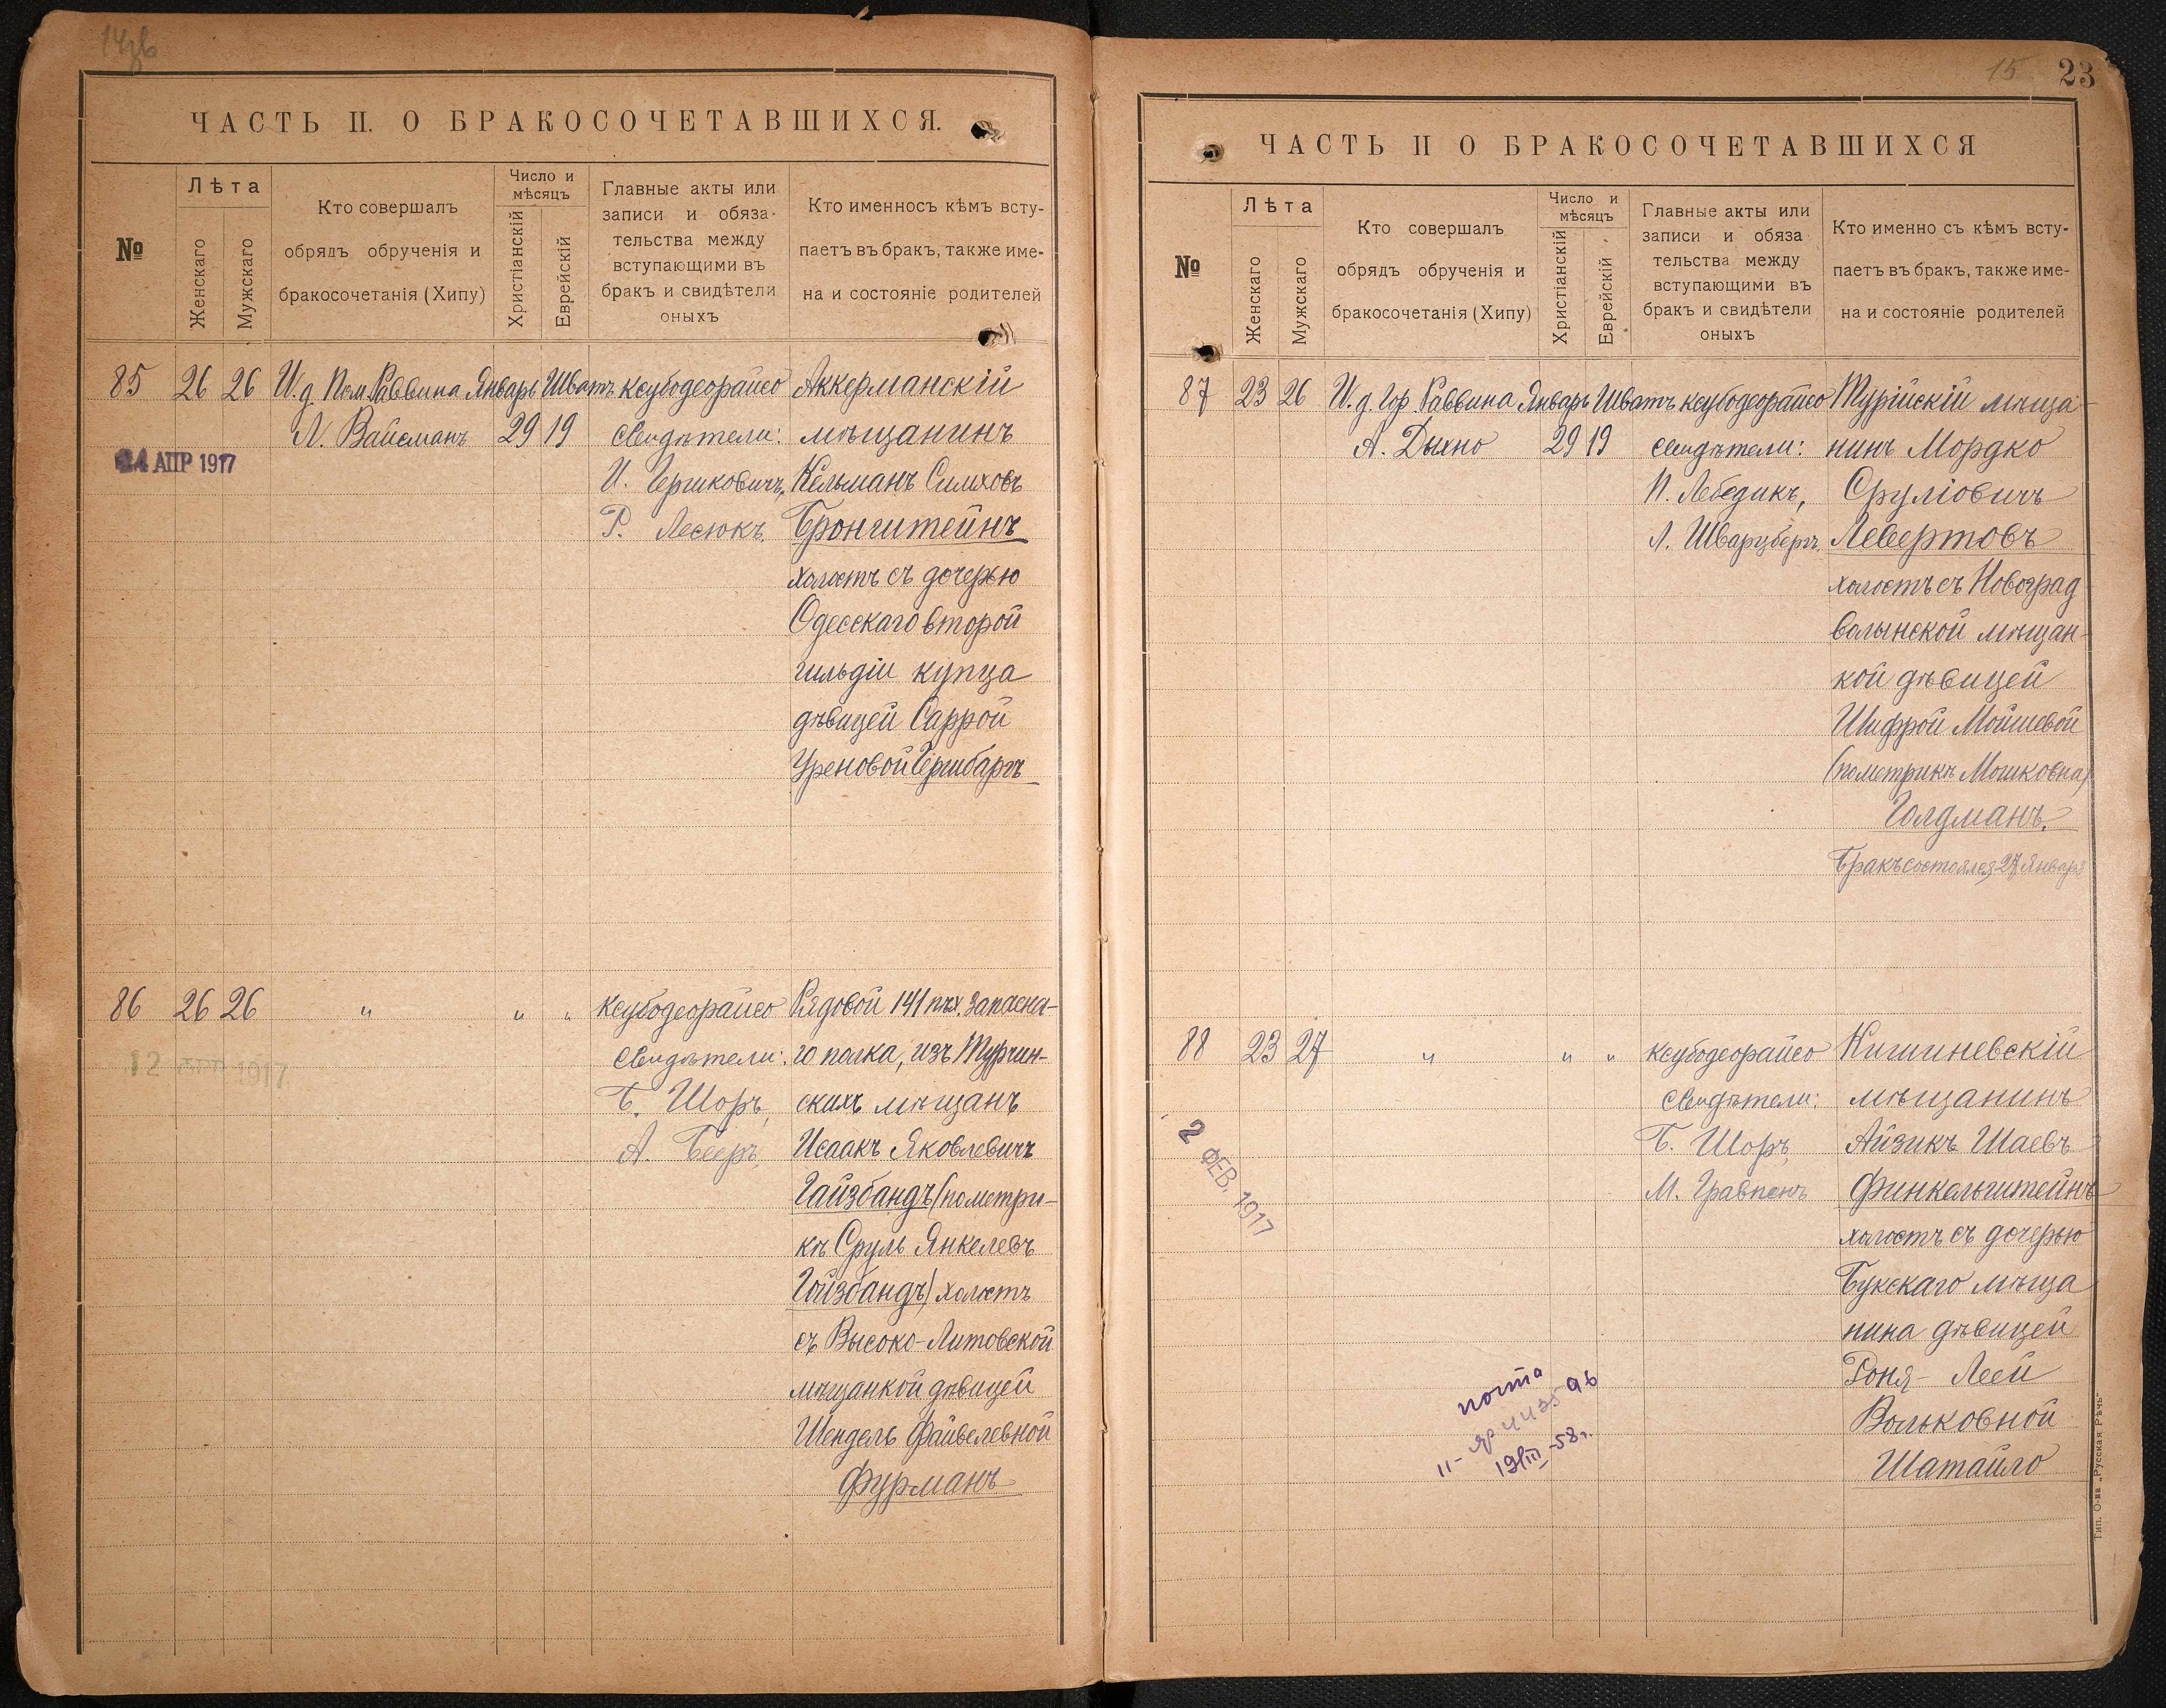 ЧАСТЬ II. О БРАКОСОЧЕТАВШИХСЯ.
№
Лѣта
Женскаго
Мужскаго
Кто совершалъ
обрядъ обрученія и
бракосочетанія (Хипу)
Число и
мѣсяцъ
Христіанскій
Еврейскій
Главные акты или
записи и обяза-
тельства между
вступающими въ
бракъ и свидѣтели
оныхъ
Кто именносъ кѣмъ всту-
паетъ въ бракъ, также име-
на и состояніе родителей
85 26 26 И. д. Пом. Раввина Январь Шватъ ксубодеорайсо Аккерманскій
Л. Вайсманъ 29 19 Свидѣтели: мѣщанинъ
24 АПР 1917
И. Гершковичъ, Кельманъ Симховъ
Р. Лесюкъ. Бронштейнъ
холостъ съ дочерью
Одесскаго второй
гильдіи купца
дѣвицей Саррой
Уреновой Гершбаргъ
86 26 26 " " " ксубодеорайсо Рядовой 141 пѣх. запасна-
Свидѣтели: го полка, изъ Турчин-
12 1917
Б. Шоръ, скихъ мѣщанъ
А. Бееръ, Исаакъ Яковлевичъ
Гайзбандъ (пометри-
кѣ Сруль Янкелевъ
Гойзбандъ) холостъ
съ Высоко-Литовской
мѣщанкой дѣвицей
Шендель Файвелевной
Фурманъ
15 23
ЧАСТЬ II О БРАКОСОЧЕТАВШИХСЯ
№
Лѣта
Женскаго
Мужскаго
Кто совершалъ
обрядъ обрученія и
бракосочетанія (Хипу)
Число и
мѣсяцъ
Христіанскій
Еврейскій
Главные акты или
записи и обяза
тельства между
вступающими въ
бракъ и свидѣтели
оныхъ
Кто именно съ кѣмъ всту-
паетъ въ бракъ, также име-
на и состояніе родителей
87 23 26 И. д. Гор. Раввина Январь Шватъ ксубодеорайсо Турійскій мѣща-
А. Дыхно 29 19 Свидѣтели: нинъ Мордко
П. Лебедикъ, Сруліовичъ
Л. Шварцбергъ. Левертовъ
холостъ съ Новоград-
волынской мѣщан-
кой дѣвицей
Шифрой Мойшевой
(пометрикъ Мошковна)
Голдманъ.
Бракъ состоялся 27 Января
88 23 27 " " " ксубодеорайсо Кишиневскій
Свидѣтели: мѣщанинъ
2 ФЕВ. 1917
Б. Шоръ, Айзикъ Шаевъ
М. Гравпенъ Финкельштейнъ
холостъ съ дочерью
Букскаго мѣща
нина дѣвицей
Роня-Леей
Вольковной
Шатайло
почта
19/III-58г.
Тип. О-ва „Русская Рѣчь“